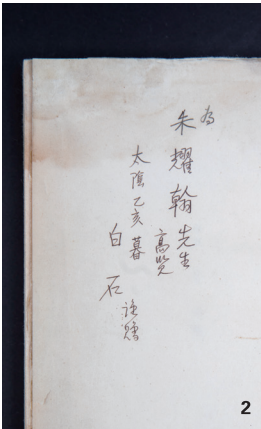 为
朱耀翰先生
高览
太陰乙亥暮
白石
謹贈
2